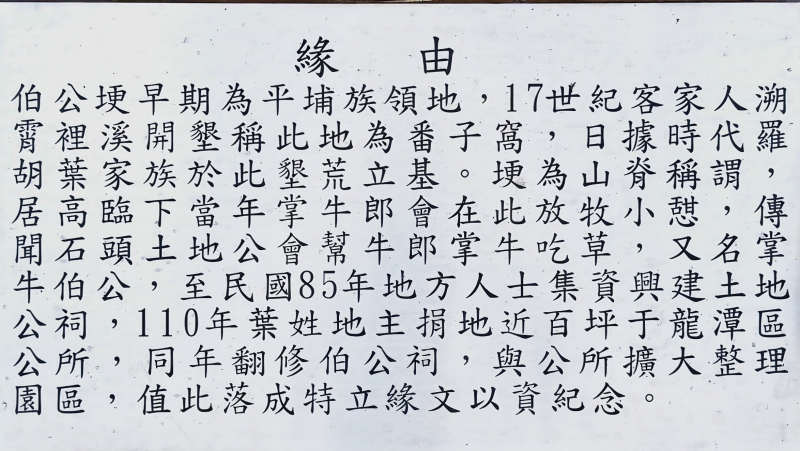 緣由
伯公埂早期為平埔族領地，17世紀客家人溯
霄裡溪開墾稱此地為番子窩，日據時代羅
胡葉家族於此墾荒立基。埂為山脊稱謂，
居高臨下當年掌牛郎會在此放牧小憇，傳
聞石頭土地公會幫牛郎掌牛吃草，又名掌
牛伯公，至民國85年地方人士集資興建土地
公祠，110年葉姓地主捐地近百坪于龍潭區
公所，同年翻修伯公祠，與公所擴大整理
園區，值此落成特立緣文以資紀念。